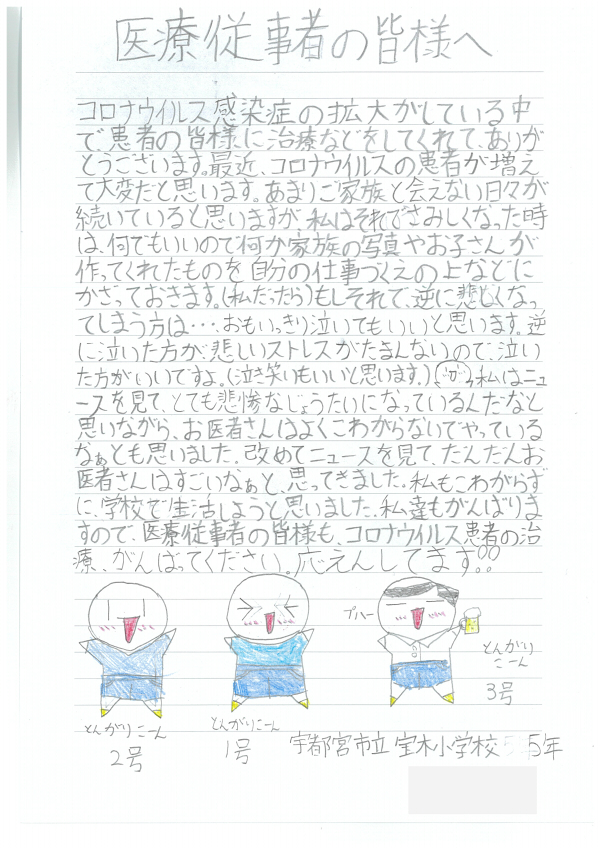 医療従事者の皆様へ
コロナウイルス感染症の拡大がしている中
で患者の皆様に治療などをしてくれて、ありが
とうございます。最近、コロナウイルスの患者が増え
て大変だと思います。あまりご家族と会えない日々が
続いていると思いますが、私はそれでさみしくなった時
は、何でもいいので何か家族の写真やお子さんが
作ってくれたものを自分の仕事づくえの上などに
かざっておきます。(私だったら)もしそれで、逆に悲しくなっ
てしまう方は…、おもいっきり泣いてもいいと思います。逆
に泣いた方が悲しいストレスがたまんないので、泣い
た方がいいですよ。(泣き笑いもいいと思います。)私はニュ
ースを見て、とても悲惨なじょうたいになっているんだなと
思いながら、お医者さんはよくこわがらないでやっている
なぁとも思いました。改めてニュースを見て、だんだんお
医者さんはすごいなぁと、思ってきました。私もこわがらず
に、学校で生活しようと思いました。私達もがんばりま
すので、医療従事者の皆様も、コロナウイルス患者の治
療、がんばってください。応えんしてます!!
プハー
とんがり
こーん
3号
とんがりこーん
2号
とんがりこーん
1号
宇都宮市立宝木小学校 5年